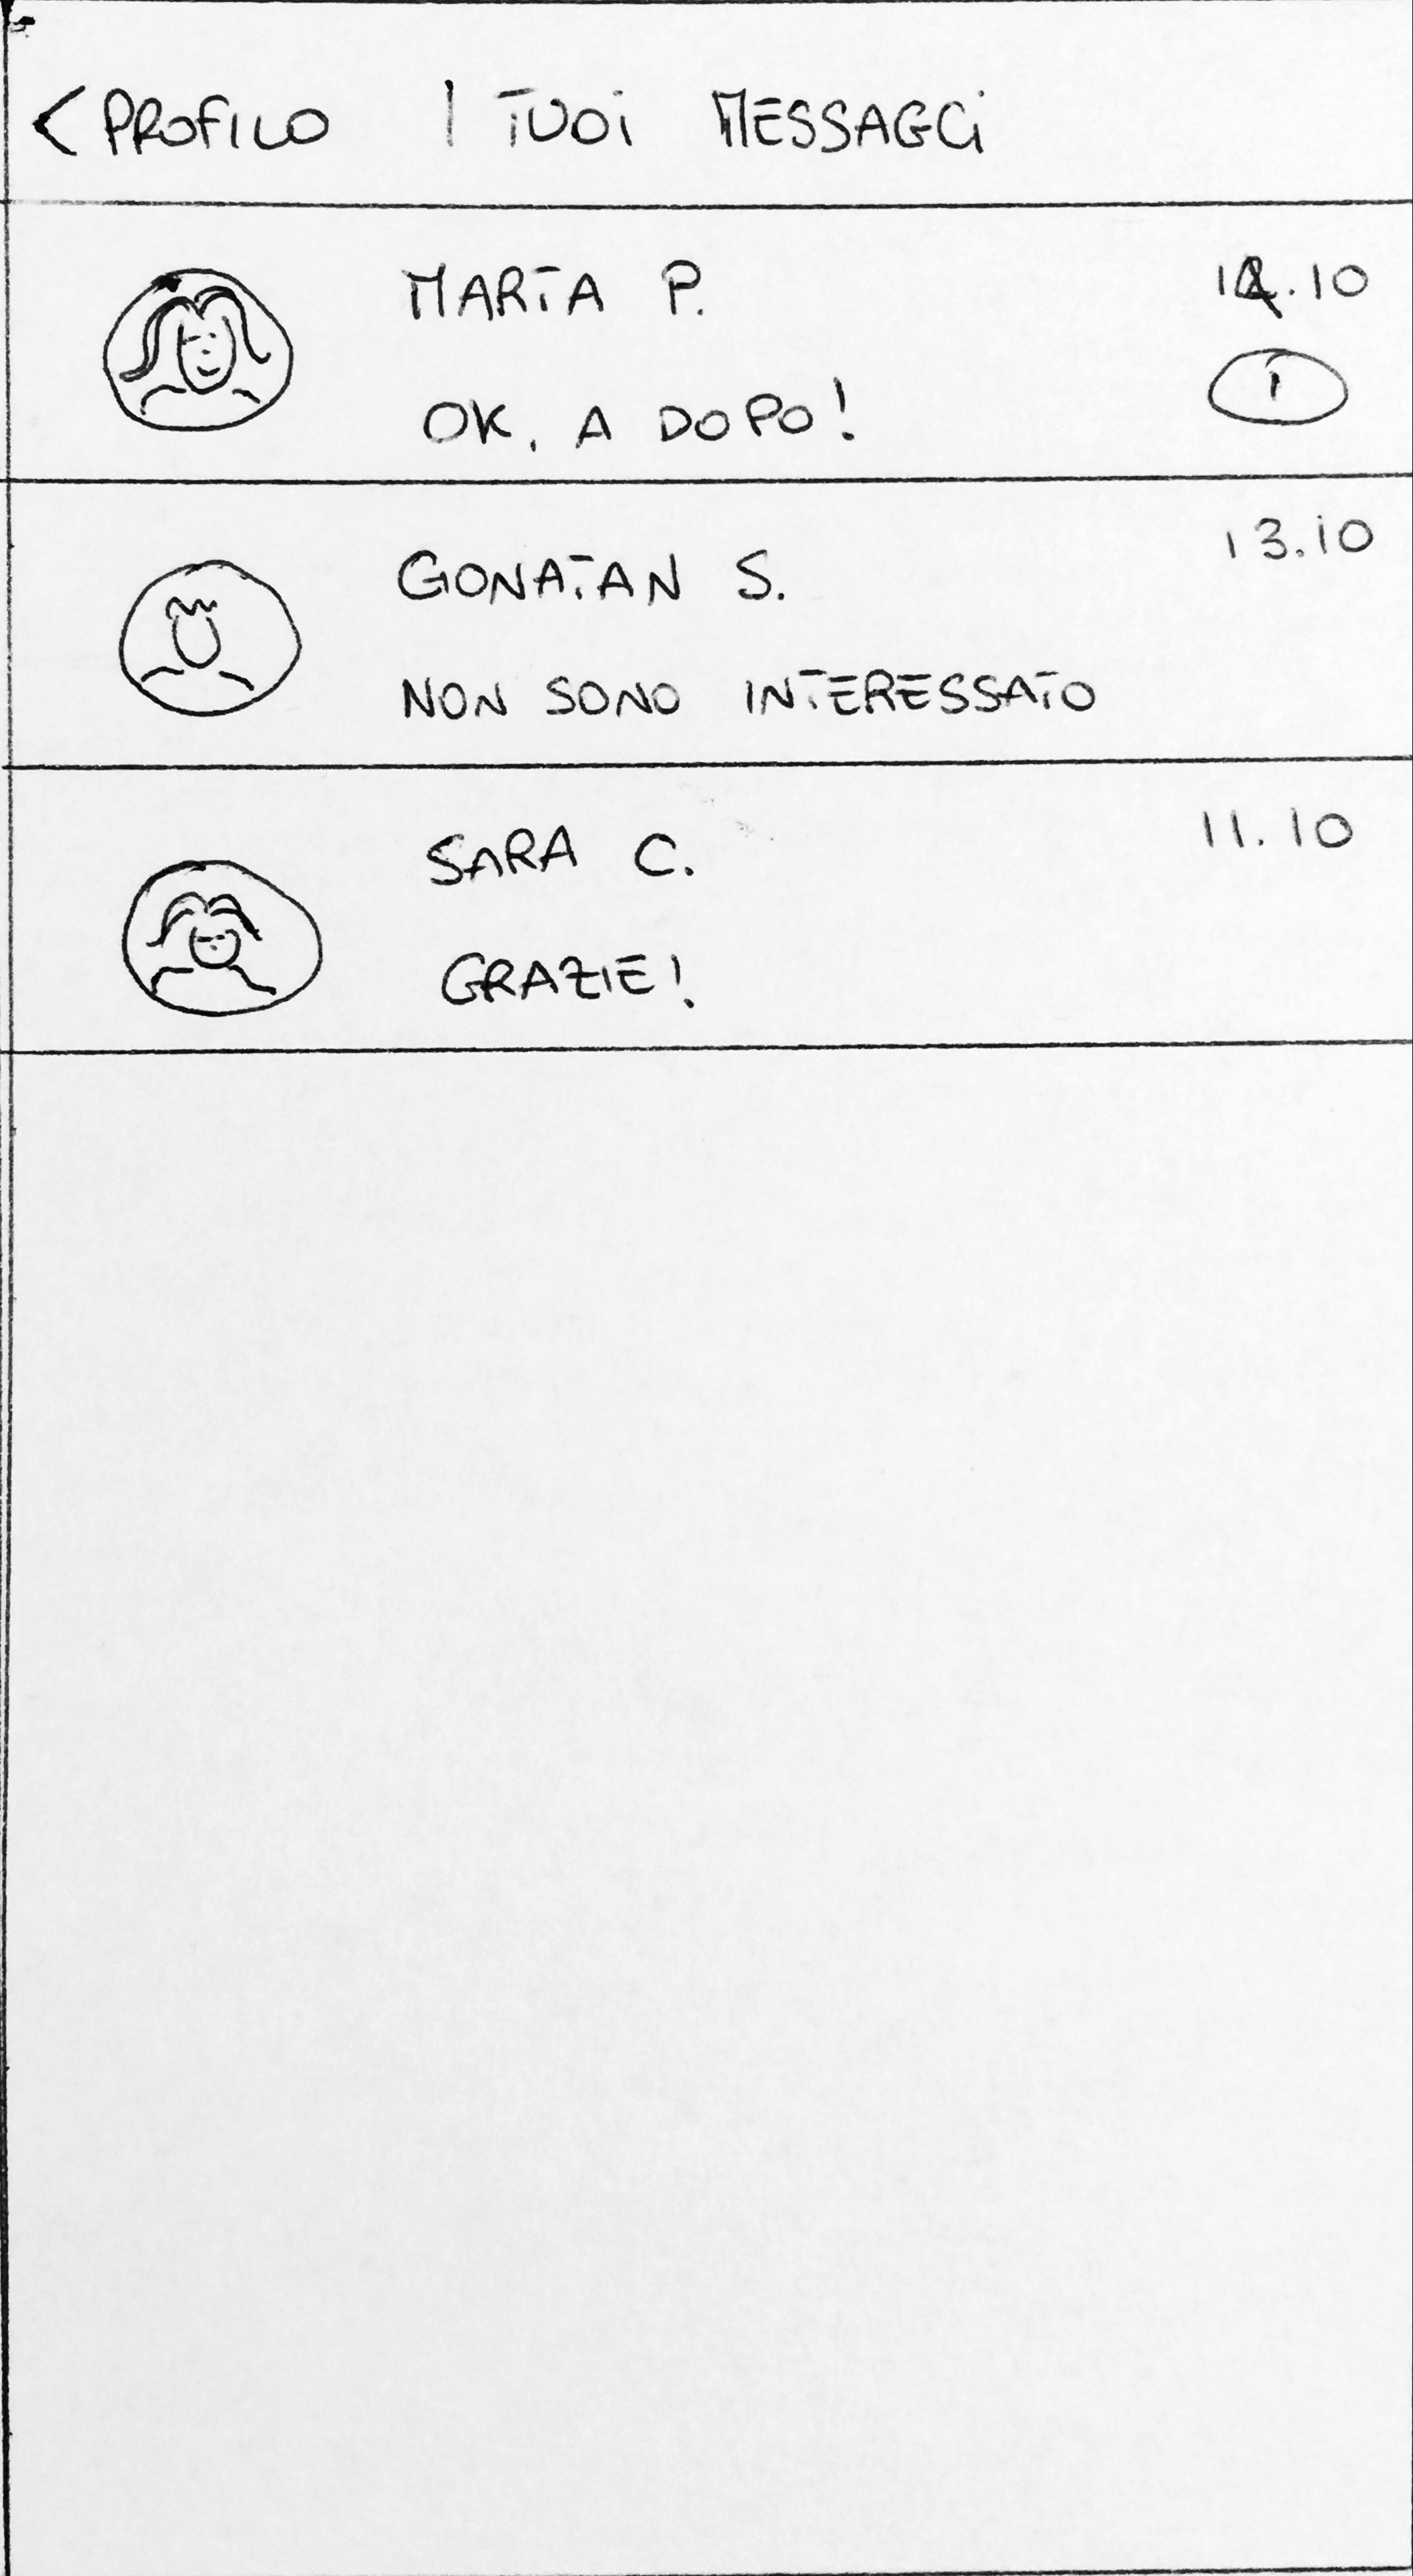 < PROFILO I TUOI MESSAGGI
MARTA P. 14.10
OK, A DOPO! 1
GONATAN S. 13.10
NON SONO INTERESSATO
SARA C. 11.10
GRAZIE!